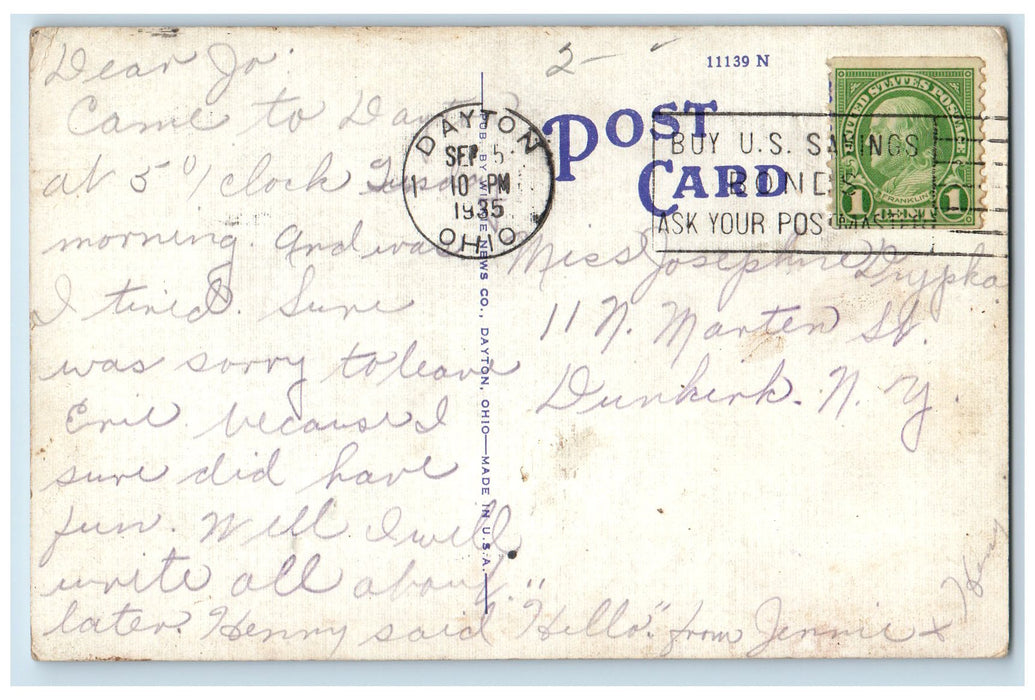 Dear Jo
Came to Dayton
at 5 o'clock Tuesday
morning. And was
I tired. Sure
was sorry to leave
Erie because I
sure did have
fun. Well I will
write all about
later. Henry said "Hello". from Jennie x
2-
11139 N
POST
CARD
DAYTON
SEP 5
10 PM
1935
OHIO
1
BUY U.S. SAVINGS
BONDS
ASK YOUR POSTMASTER
UNITED STATES POSTAGE
FRANKLIN
1 1
PUB. BY WILKIE NEWS CO., DAYTON, OHIO—MADE IN U.S.A.
Miss Josephine Drypka
11 N. Marten St.
Dunkirk. N. Y.